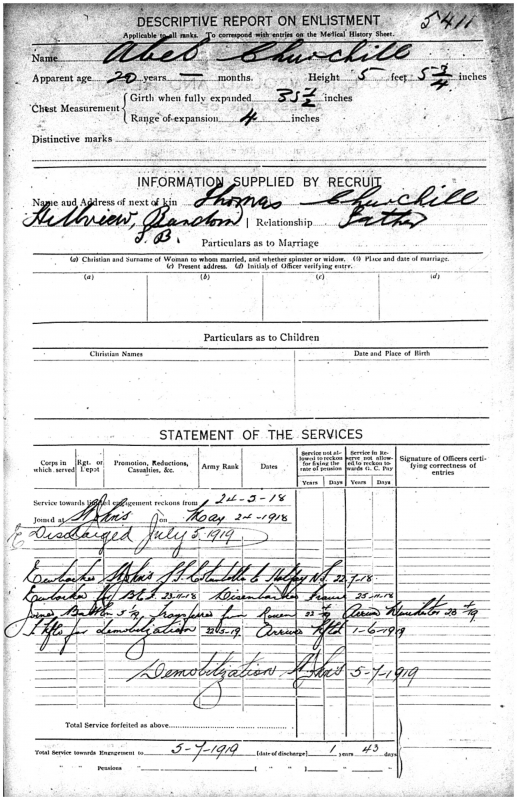 DESCRIPTIVE REPORT ON ENLISTMENT 5411
Applicable to all ranks. To correspond with entries on the Medical History Sheet.
Name Abel Churchill
Apparent age 20 years — months. Height 5 feet 5 3/4 inches
Chest Measurement { Girth when fully expanded 35 1/2 inches
Range of expansion 4 inches
Distinctive marks
INFORMATION SUPPLIED BY RECRUIT
Name and Address of next of kin Thomas Churchill
Hillview, | Relationship Father
Particulars as to Marriage
(a) Christian and Surname of Woman to whom married, and whether spinster or widow. (b) Place and date of marriage.
(c) Present address. (d) Initials of Officer verifying entry.
(a) (b) (c) (d)
Particulars as to Children
Christian Names Date and Place of Birth
STATEMENT OF THE SERVICES
Corps in which served
Rgt. or Depot
Promotion, Reductions, Casualties, &c.
Army Rank
Dates
Service not allowed to reckon for fixing the rate of pension
Years Days
Service in Reserve not allowed to reckon towards G. C. Pay
Years Days
Signature of Officers certifying correctness of entries
Service towards limited engagement reckons from 24-5-18
Joined at St John's on May 24-1918
Discharged July 5. 1919
Embarked St John's S.S. to Halifax N.S. 22-7-18
Embarked for B.E.F. 23-11-18 Disembarked France 25-11-18
Joined Battn from Rouen Arrived Winchester
to Nfld for demobilization 22-5-19 Arrived Nfld 1-6-1919
Demobilization St John's 5-7-1919
Total Service forfeited as above
Total Service towards Engagement to 5-7-1919 [date of discharge] 1 years 43 days
" " Pensions [ " " ] " "